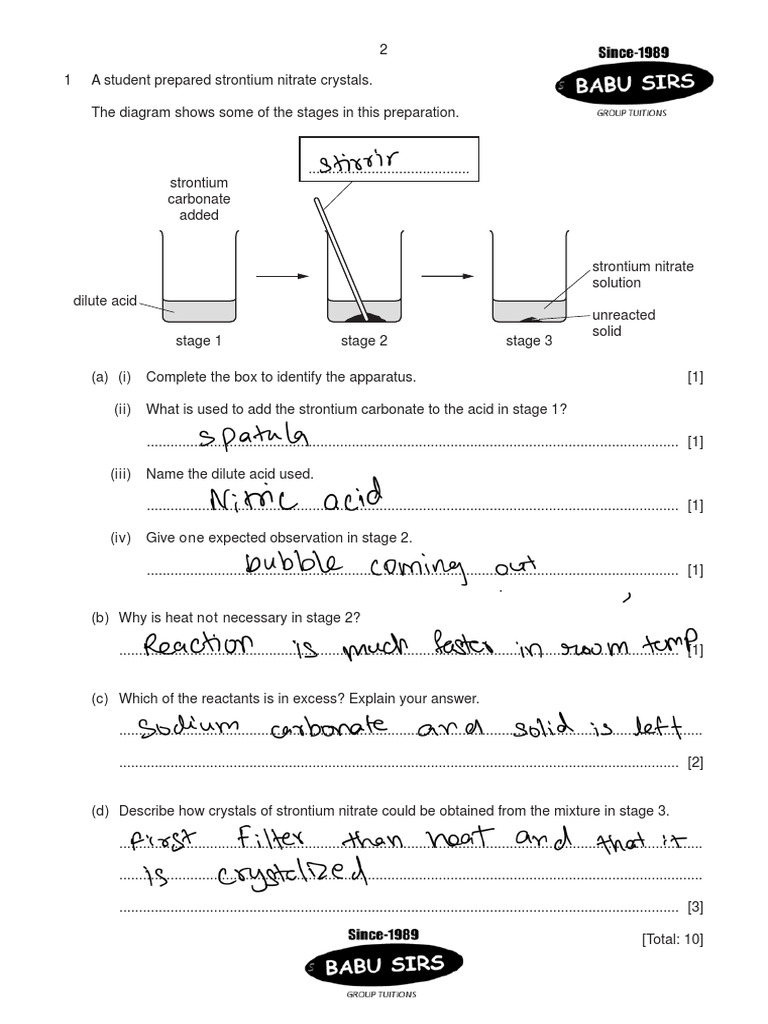 2
Since-1989
BABU SIRS
GROUP TUITIONS
1 A student prepared strontium nitrate crystals.
The diagram shows some of the stages in this preparation.
stirrir
strontium
carbonate
added
dilute acid
strontium nitrate
solution
unreacted
solid
stage 1 stage 2 stage 3
(a) (i) Complete the box to identify the apparatus. [1]
(ii) What is used to add the strontium carbonate to the acid in stage 1?
spatula [1]
(iii) Name the dilute acid used.
Nitric acid [1]
(iv) Give one expected observation in stage 2.
bubble coming out [1]
(b) Why is heat not necessary in stage 2?
Reaction is much faster in room temp [1]
(c) Which of the reactants is in excess? Explain your answer.
Sodium carbonate and solid is left
[2]
(d) Describe how crystals of strontium nitrate could be obtained from the mixture in stage 3.
first filter than heat and that it
is crystalized
[3]
[Total: 10]
Since-1989
BABU SIRS
GROUP TUITIONS